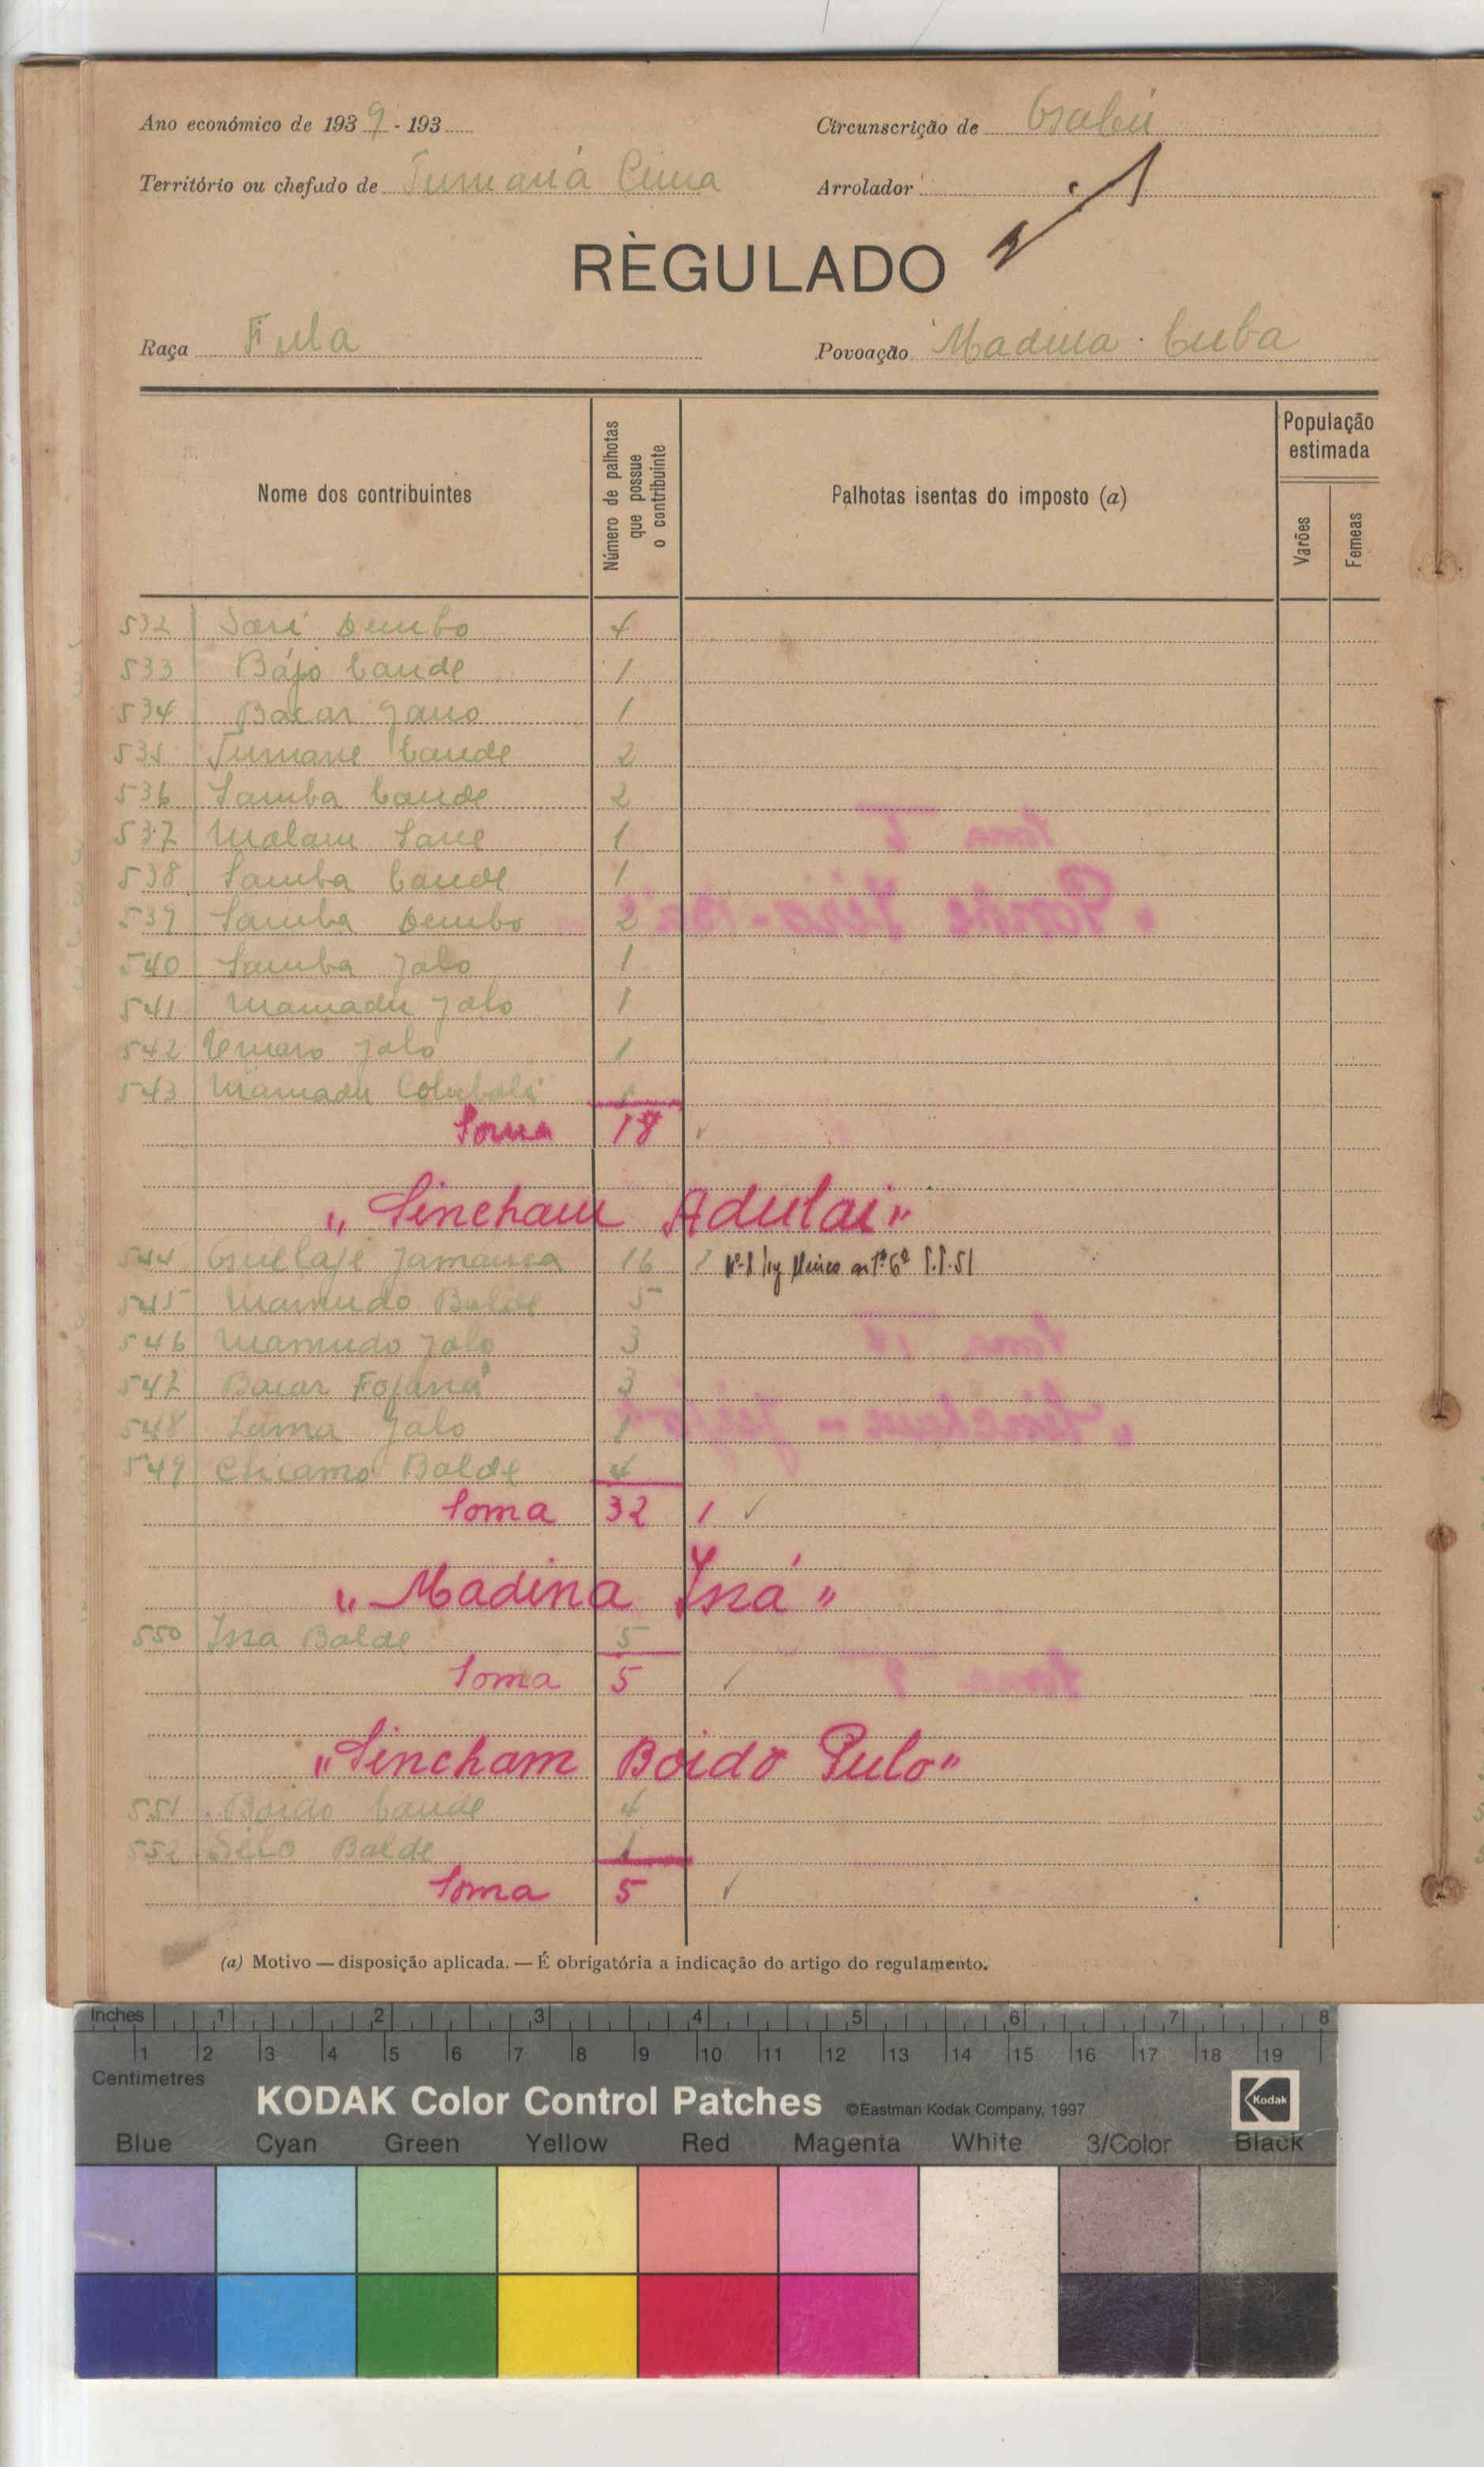 Ano económico de 1939 - 193
Circunscrição de Gabú
Território ou chefado de Tumaná Cima
Arrolador
RÈGULADO
Raça Fula
Povoação Madina Cuba
Nome dos contribuintes
Número de palhotas que possue o contribuinte
Palhotas isentas do imposto (a)
População estimada
Varões
Femeas
532 Sori Dembo 4
533 Bájo Cande 1
534 Bacar Gano 1
535 Tumane Cande 2
536 Samba Cande 2
537 Malam Sane 1
538 Samba Cande 1
539 Samba Dembo 2
540 Samba Jalo 1
541 Mamadu Jalo 1
542 Umaro Jalo 1
543 Mamadu Colubali 1
Soma 18
"Sincham Adulai"
544 Guelaje 16 1
545 Mamudo Balde 5
546 Mamudo Jalo 3
547 Bacar Fofaná 3
548 Lama Jalo 1
549 Chicamo Balde 4
Soma 32 1
"Madina Issá"
550 Issa Balde 5
Soma 5
"Sincham Boido Pulo"
551 Boido Cande 4
552 Selo Balde 1
Soma 5
(a) Motivo — disposição aplicada. — É obrigatória a indicação do artigo do regulamento.
Inches 1 2 3 4 5 6 7 8
1 2 3 4 5 6 7 8 9 10 11 12 13 14 15 16 17 18 19
Centimetres
KODAK Color Control Patches ©Eastman Kodak Company, 1997 Kodak
Blue Cyan Green Yellow Red Magenta White 3/Color Black